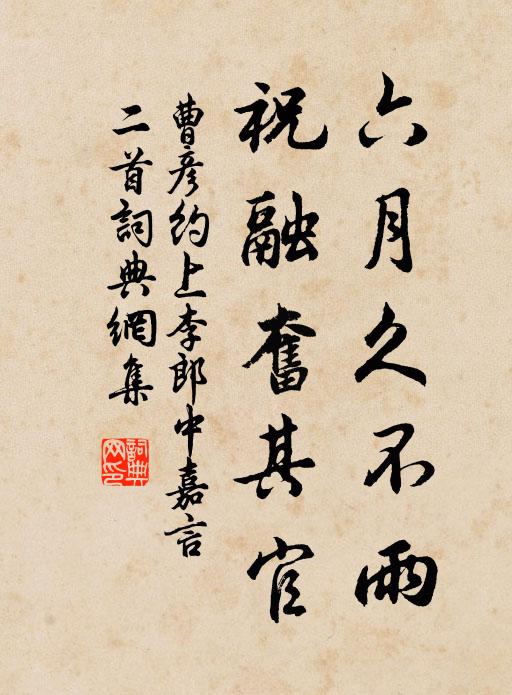 六月久不雨
祝融奮其官
曹彦約上李郎中嘉言
二首詞典網集
詞典网印